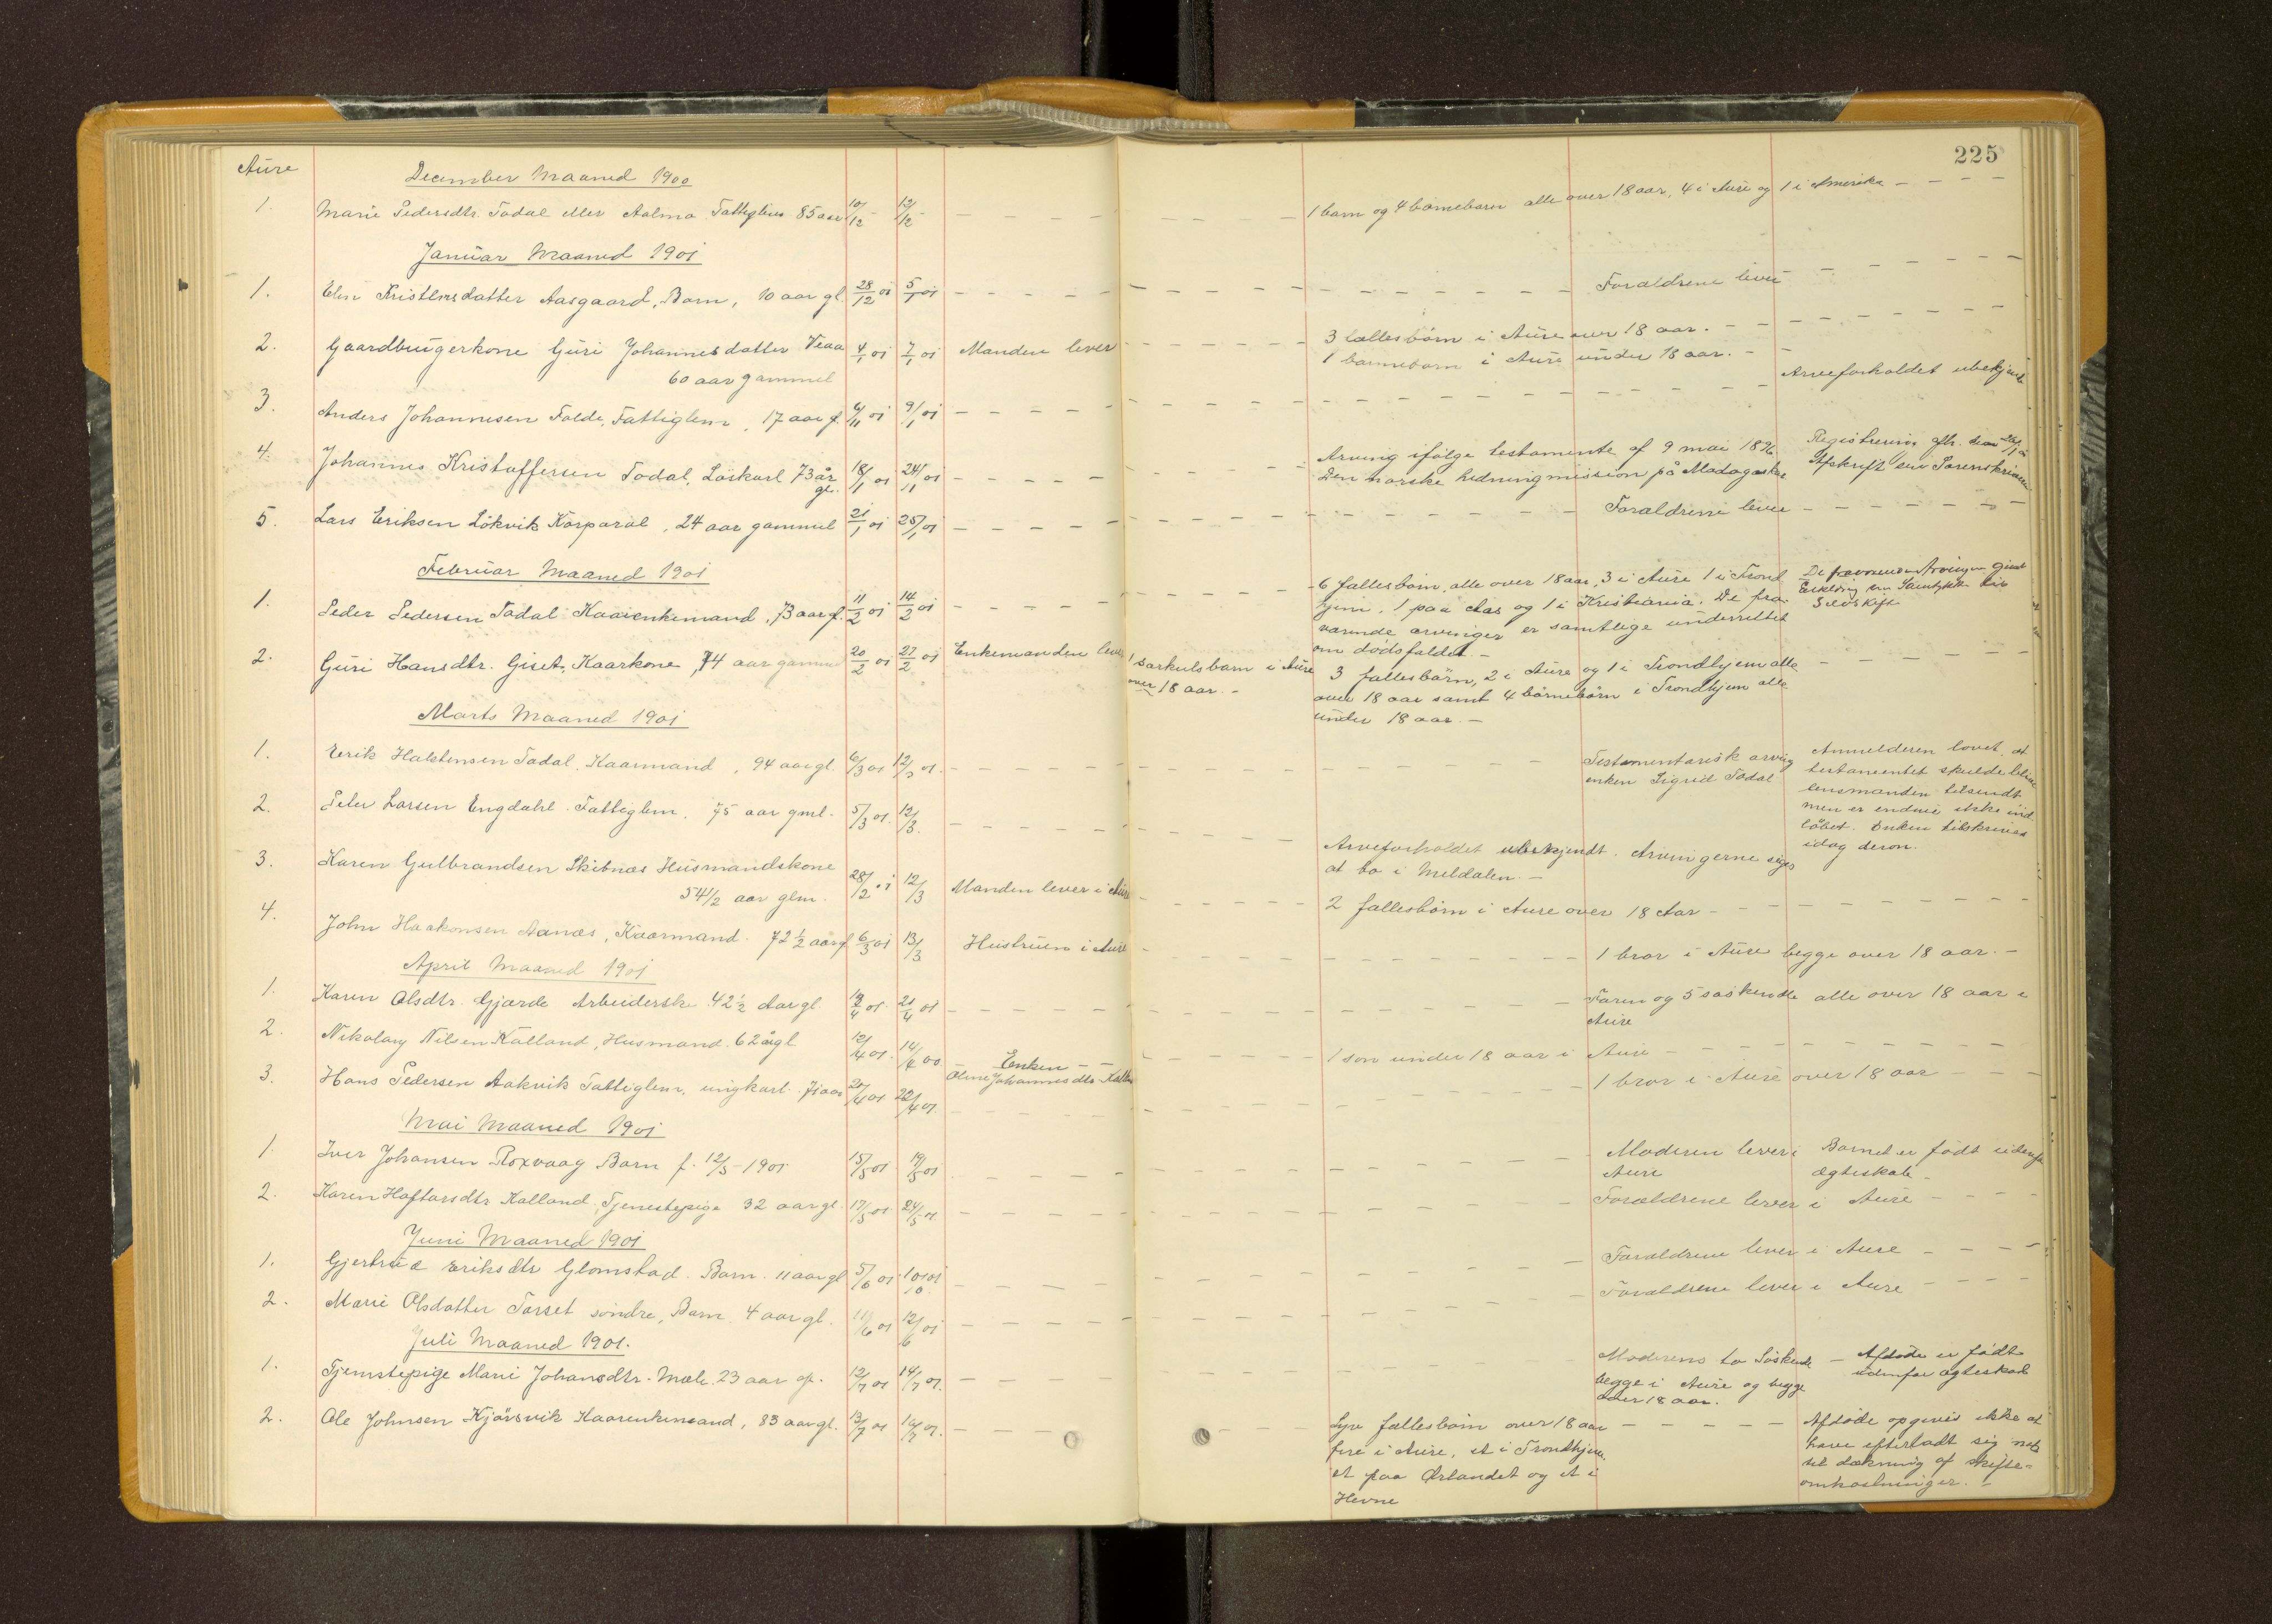 225
Aure
December Maaned 1900
1. Marie Pedersdtr. Todal eller Aalmo Fattiglem 85 aar 10/12 12/12 1 barn og 4 børnebørn alle over 18 aar, 4 i Aure og 1 i Amerika
Januar Maaned 1901
1. Elen Kristensdatter Aasgaard, Barn, 10 aar gl. 28/12 01 5/1 01 Forældrene lever
2. Gaardbrugerkone Guri Johannesdatter Veaa 4/1 01 7/1 01 Manden lever 3 fællesbørn i Aure over 18 aar.
60 aar gammel 1 barnebarn i Aure under 18 aar.
3. Anders Johannesen Folde, Fattiglem, 17 aar g. 6/11 01 9/1 01 Arveforholdet ubekjendt
4. Johannes Kristoffersen Todal, Løskarl 73 år gl. 18/1 01 24/11 01 Arving ifølge testamente af 9 mai 1896
Den norske hedningmission på Madagaskar
Registrering
Afskrift Sorenskriveren
5. Lars Eriksen Løkvik Korporal, 24 aar gammel 21/1 01 25/1 01 Forældrene lever
Februar Maaned 1901
1. Peder Pedersen Todal Kaarenkemand, 73 aar g. 11/2 01 14/2 01 6 fællesbørn, alle over 18 aar, 3 i Aure 1 i Trond
hjem, 1 paa Aas og 1 i Kristiania. De fra
værende arvinger er samtlige underrettet
om dødsfaldet. -
De fraværende Arvinger givet
Erklæring om Samtykke til
Selvskifte
2. Guri Hansdtr. Giset, Kaarkone, 74 aar gammel 20/2 01 27/2 01 Enkemanden lever 1 særkulsbarn i Aure
over 18 aar. -
3 fællesbørn, 2 i Aure og 1 i Trondhjem alle
over 18 aar samt 4 børnebørn i Trondhjem alle
under 18 aar. -
Marts Maaned 1901
1. Erik Halstensen Todal, Kaarmand, 94 aar gl. 6/3 01 12/3 01. Testamentarisk arving
enken Sigrid Todal
Anmelderen lovet, at
testamentet skulde blive
lensmanden tilsendt
men er endnu ikke ind
løbet. Enken tilskrives
idag derom.
2. Peter Larsen Engdahl. Fattiglem, 75 aar gml. 5/3 01. 12/3. Arveforholdet ubekjendt. Arvingerne siges
at bo i Meldalen. -
3. Karen Gulbrandsen Skibnæs Husmandskone
54 1/2 aar glm. 28/2 01 12/3 Manden lever i Aure 2 fællesbørn i Aure over 18 Aar -
4. John Haakonsen Aanæs, Kaarmand. 72 1/2 aar g. 6/3 01 13/3 Hustruen i Aure 1 bror i Aure begge over 18 aar. -
April Maaned 1901
1. Karen Olsdtr. Gjærde Arbeiderske 42 1/2 Aar gl. 19/4 01. 21/4 01 Faren og 5 søskende alle over 18 aar i
Aure
2. Nikolay Nilsen Kalland, Husmand. 62 år gl 12/4 01. 14/4 00. Enken
Johannesdtr Kalland 1 søn under 18 aar i Aure
3. Hans Pedersen Aakvik Fattiglem, ungkarl. 71 aar 20/4 01 22/4 01. 1 bror i Aure over 18 aar
Mai Maaned 1901
1. Iver Johansen Roxvaag Barn f. 12/5 - 1901 15/5 01 19/5 01 Moderen lever i
Aure
Barnet er født udenfor
ægteskab.
2. Karen Haftorsdtr Kalland, Tjenestepige 32 aar gl. 17/5 01 24/5 01 Forældrene lever i Aure
Juni Maaned 1901
1. Gjertrud Eriksdtr Glomstad. Barn. 11 aar gl 5/6 01 Forældrene lever i Aure
2. Marie Olsdatter Torset søndre, Barn, 4 aar gl. 11/6 01 12/6 01 Forældrene lever i Aure
Juli Maaned 1901.
1. Tjenstepige Marie Johansdtr. Mæle 23 aar g. 12/7 01 14/7 01. Moderens to Søskende
begge i Aure og begge
over 18 aar.
Afdøde er født
udenfor ægteskab
2. Ole Johnsen Kjørsvik Kaarenkemand, 83 aar gl. 13/7 01 16/7 01. Syv fællesbørn over 18 aar
fire i Aure, et i Trondhjem,
et paa Ørlandet og et i
Hevne
Afdøde opgives ikke at
have efterladt sig nok
til dækning af skifte=
omkostninger. -